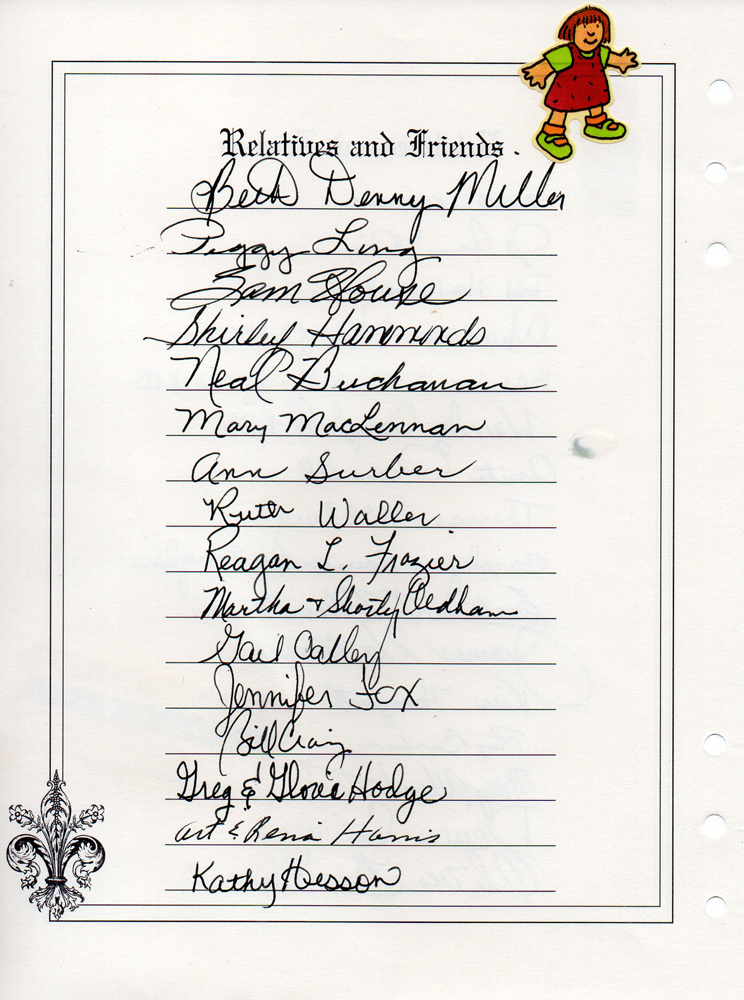 Relatives and Friends.
Beth Denny Miller
Peggy Long
Sam House
Shirley Hammonds
Neal Buchanan
Mary MacLennan
Ann Surber
Ruth Waller
Reagan L. Frazier
Martha + Shorty Oldham
Gail Calley
Jennifer Fox
Bill Craig
Greg & Gloria Hodge
Art & Rena Harris
Kathy Hesson